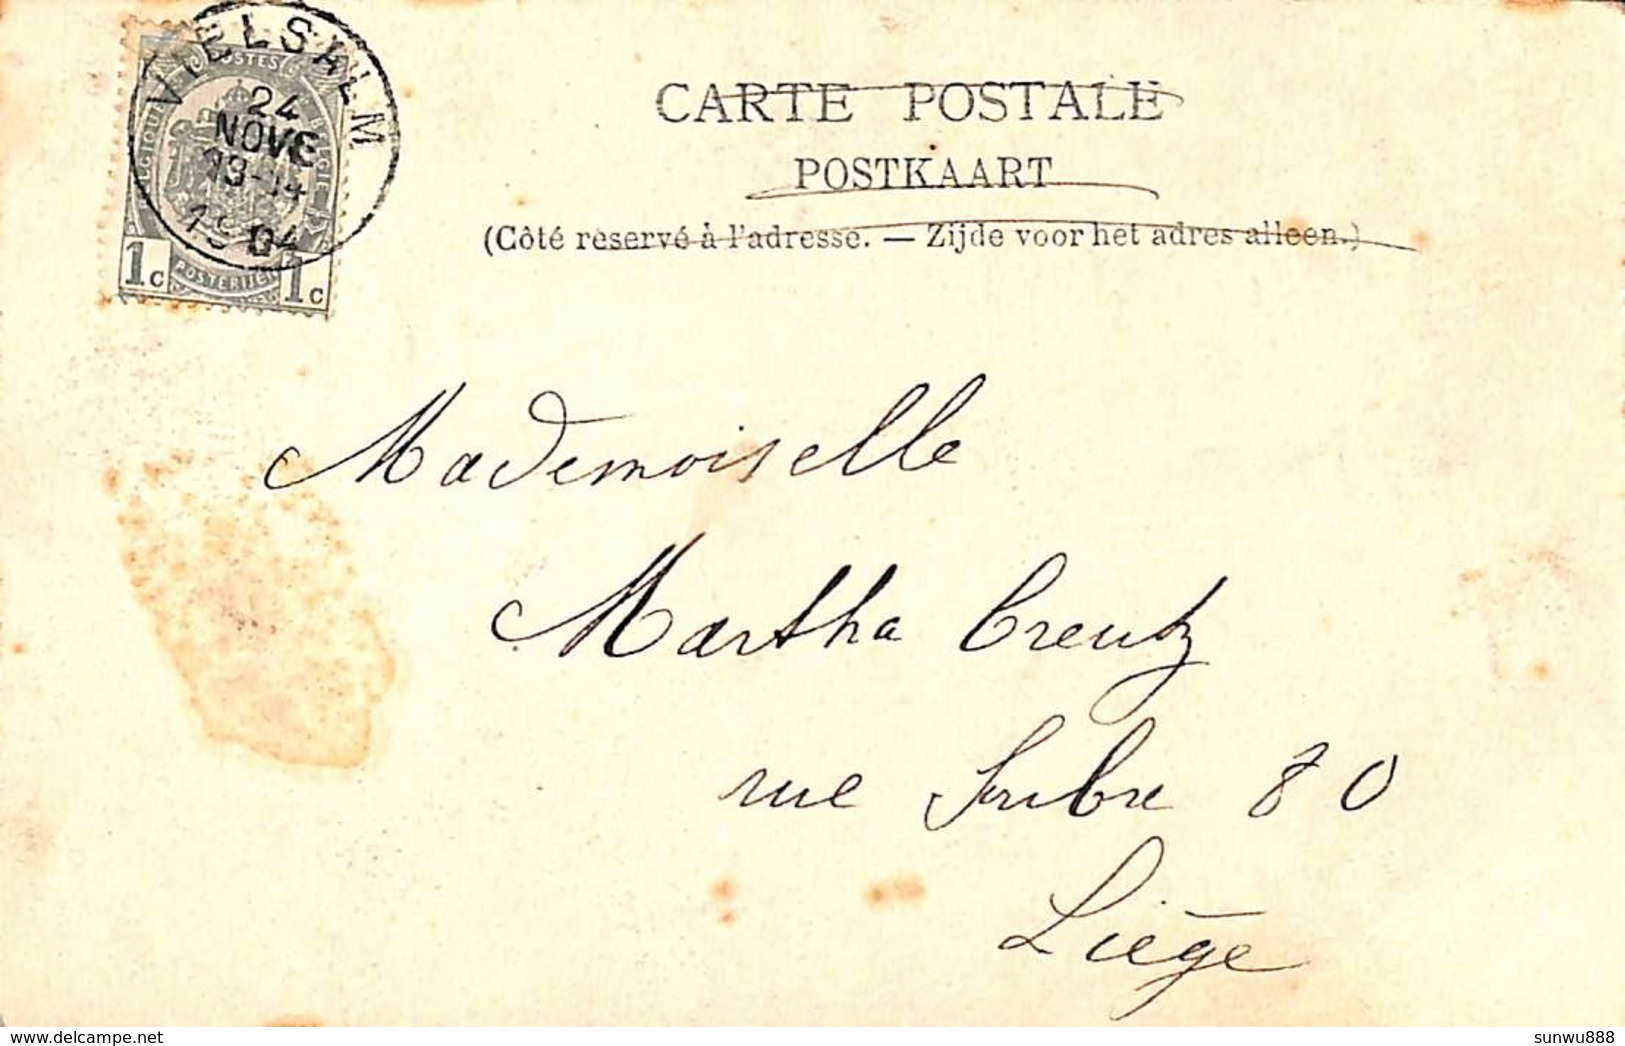 VIELSALM
24
NOVE
13-14
1904
POSTES
BELGIQUE
BELGIË
1c POSTERIJEN 1c
CARTE POSTALE
POSTKAART
(Côté réservé à l'adresse. — Zijde voor het adres alleen.)
Mademoiselle
Martha Creutz
rue 80
Liége
sunwu888